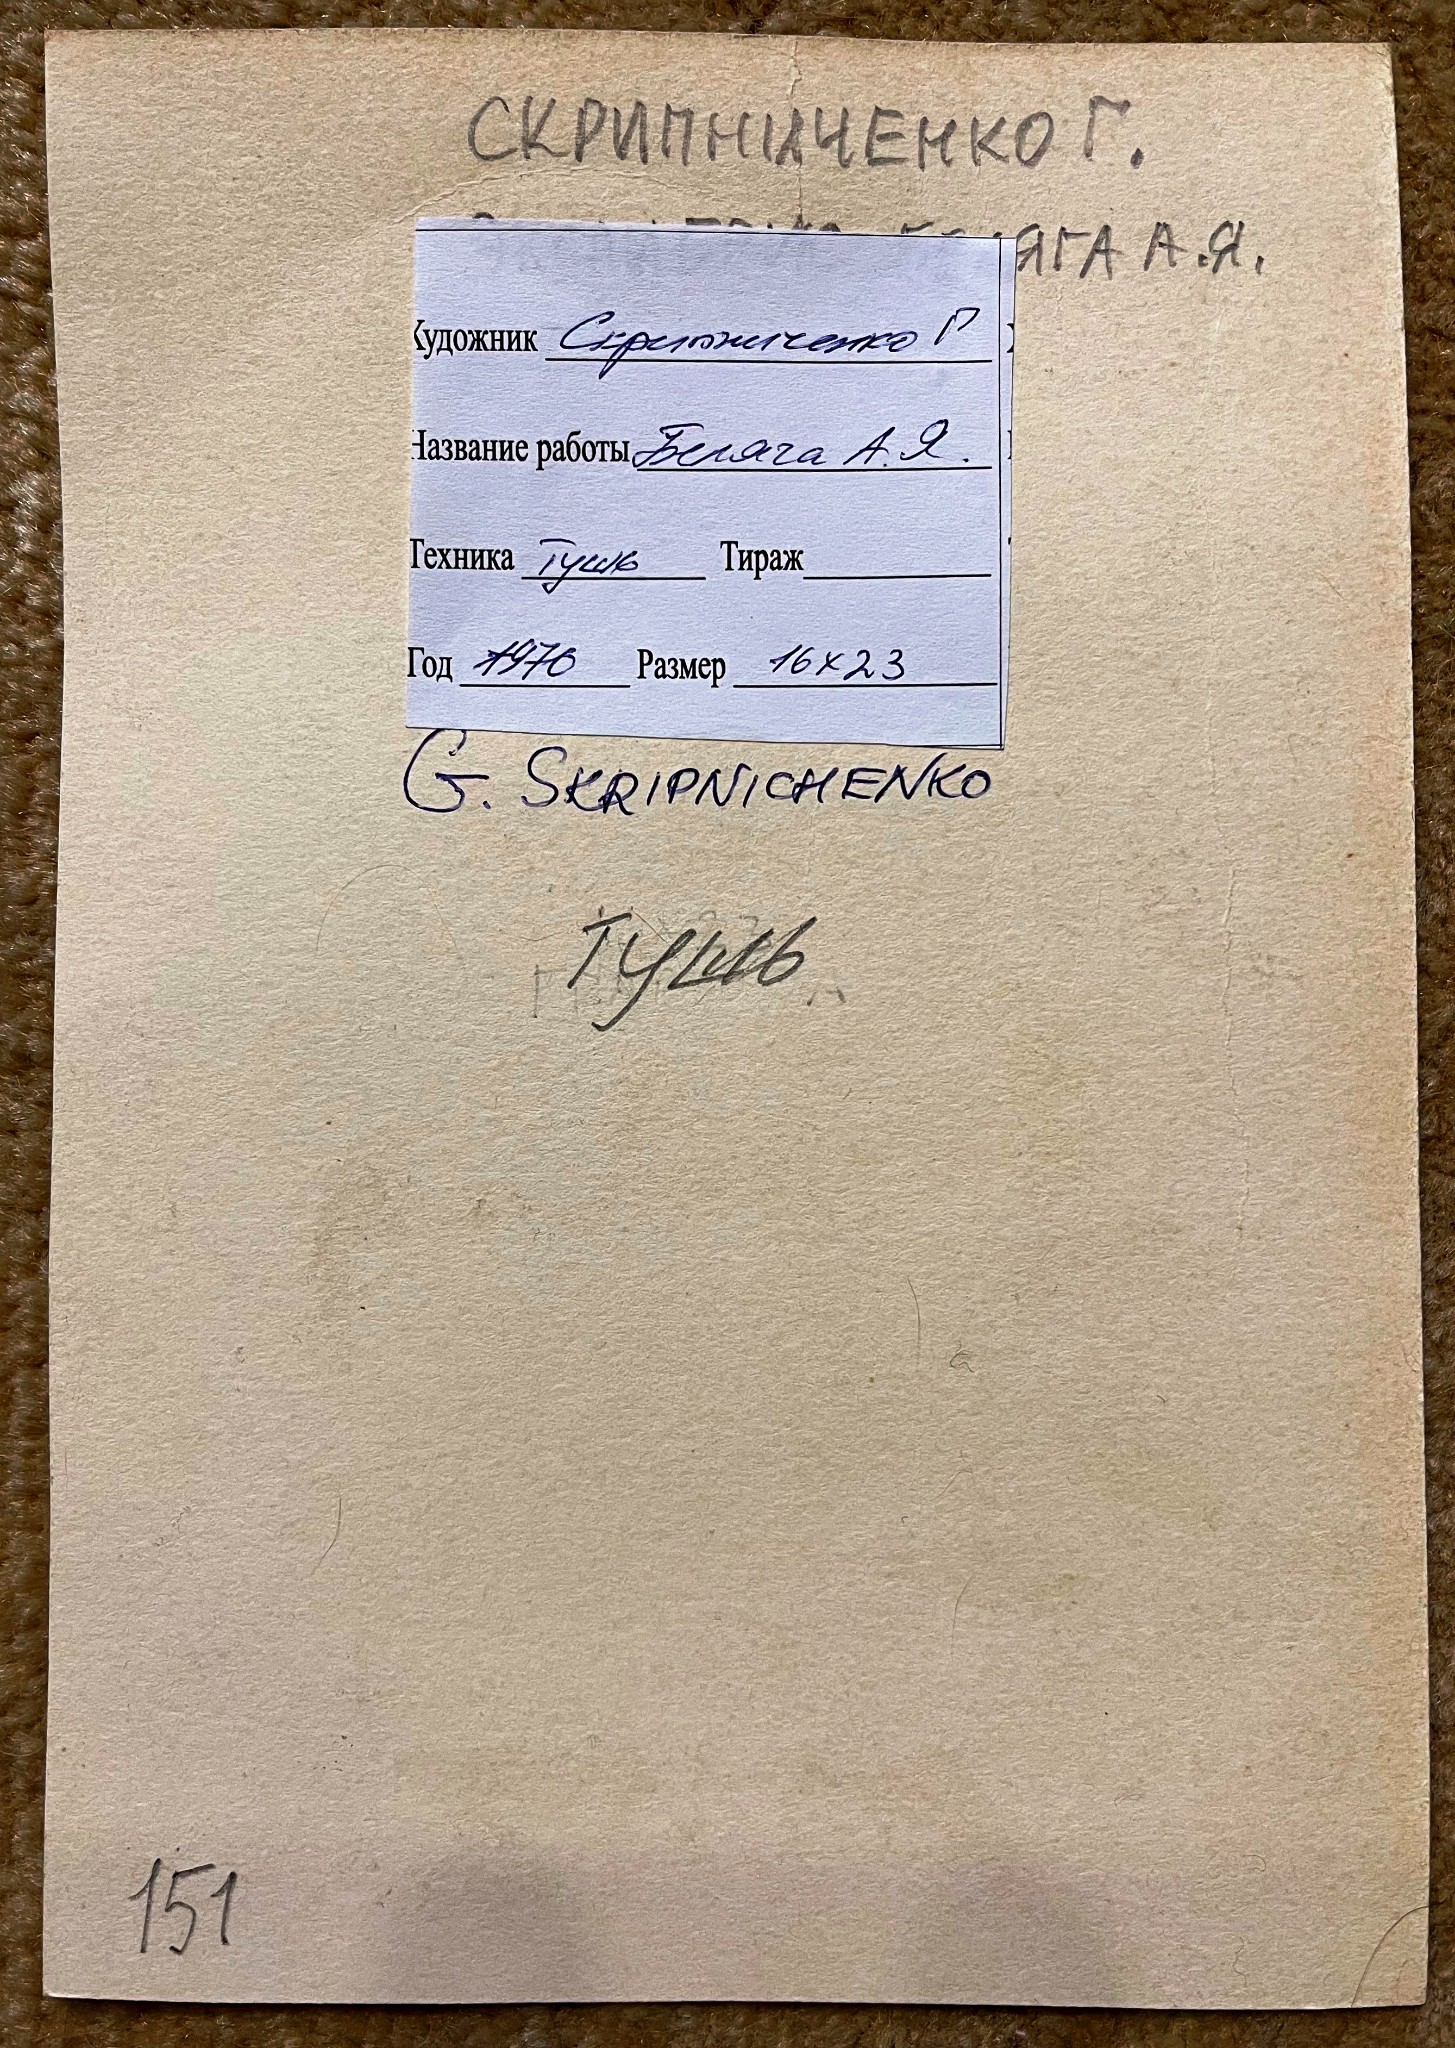 СКРИПНИЧЕНКО Г.
А.Я.
Художник Скрипниченко Г
Название работы Беляга А.Я.
Техника Тушь Тираж
Год 1970 Размер 16х23
G. SKRIPNICHENKO
Тушь
151